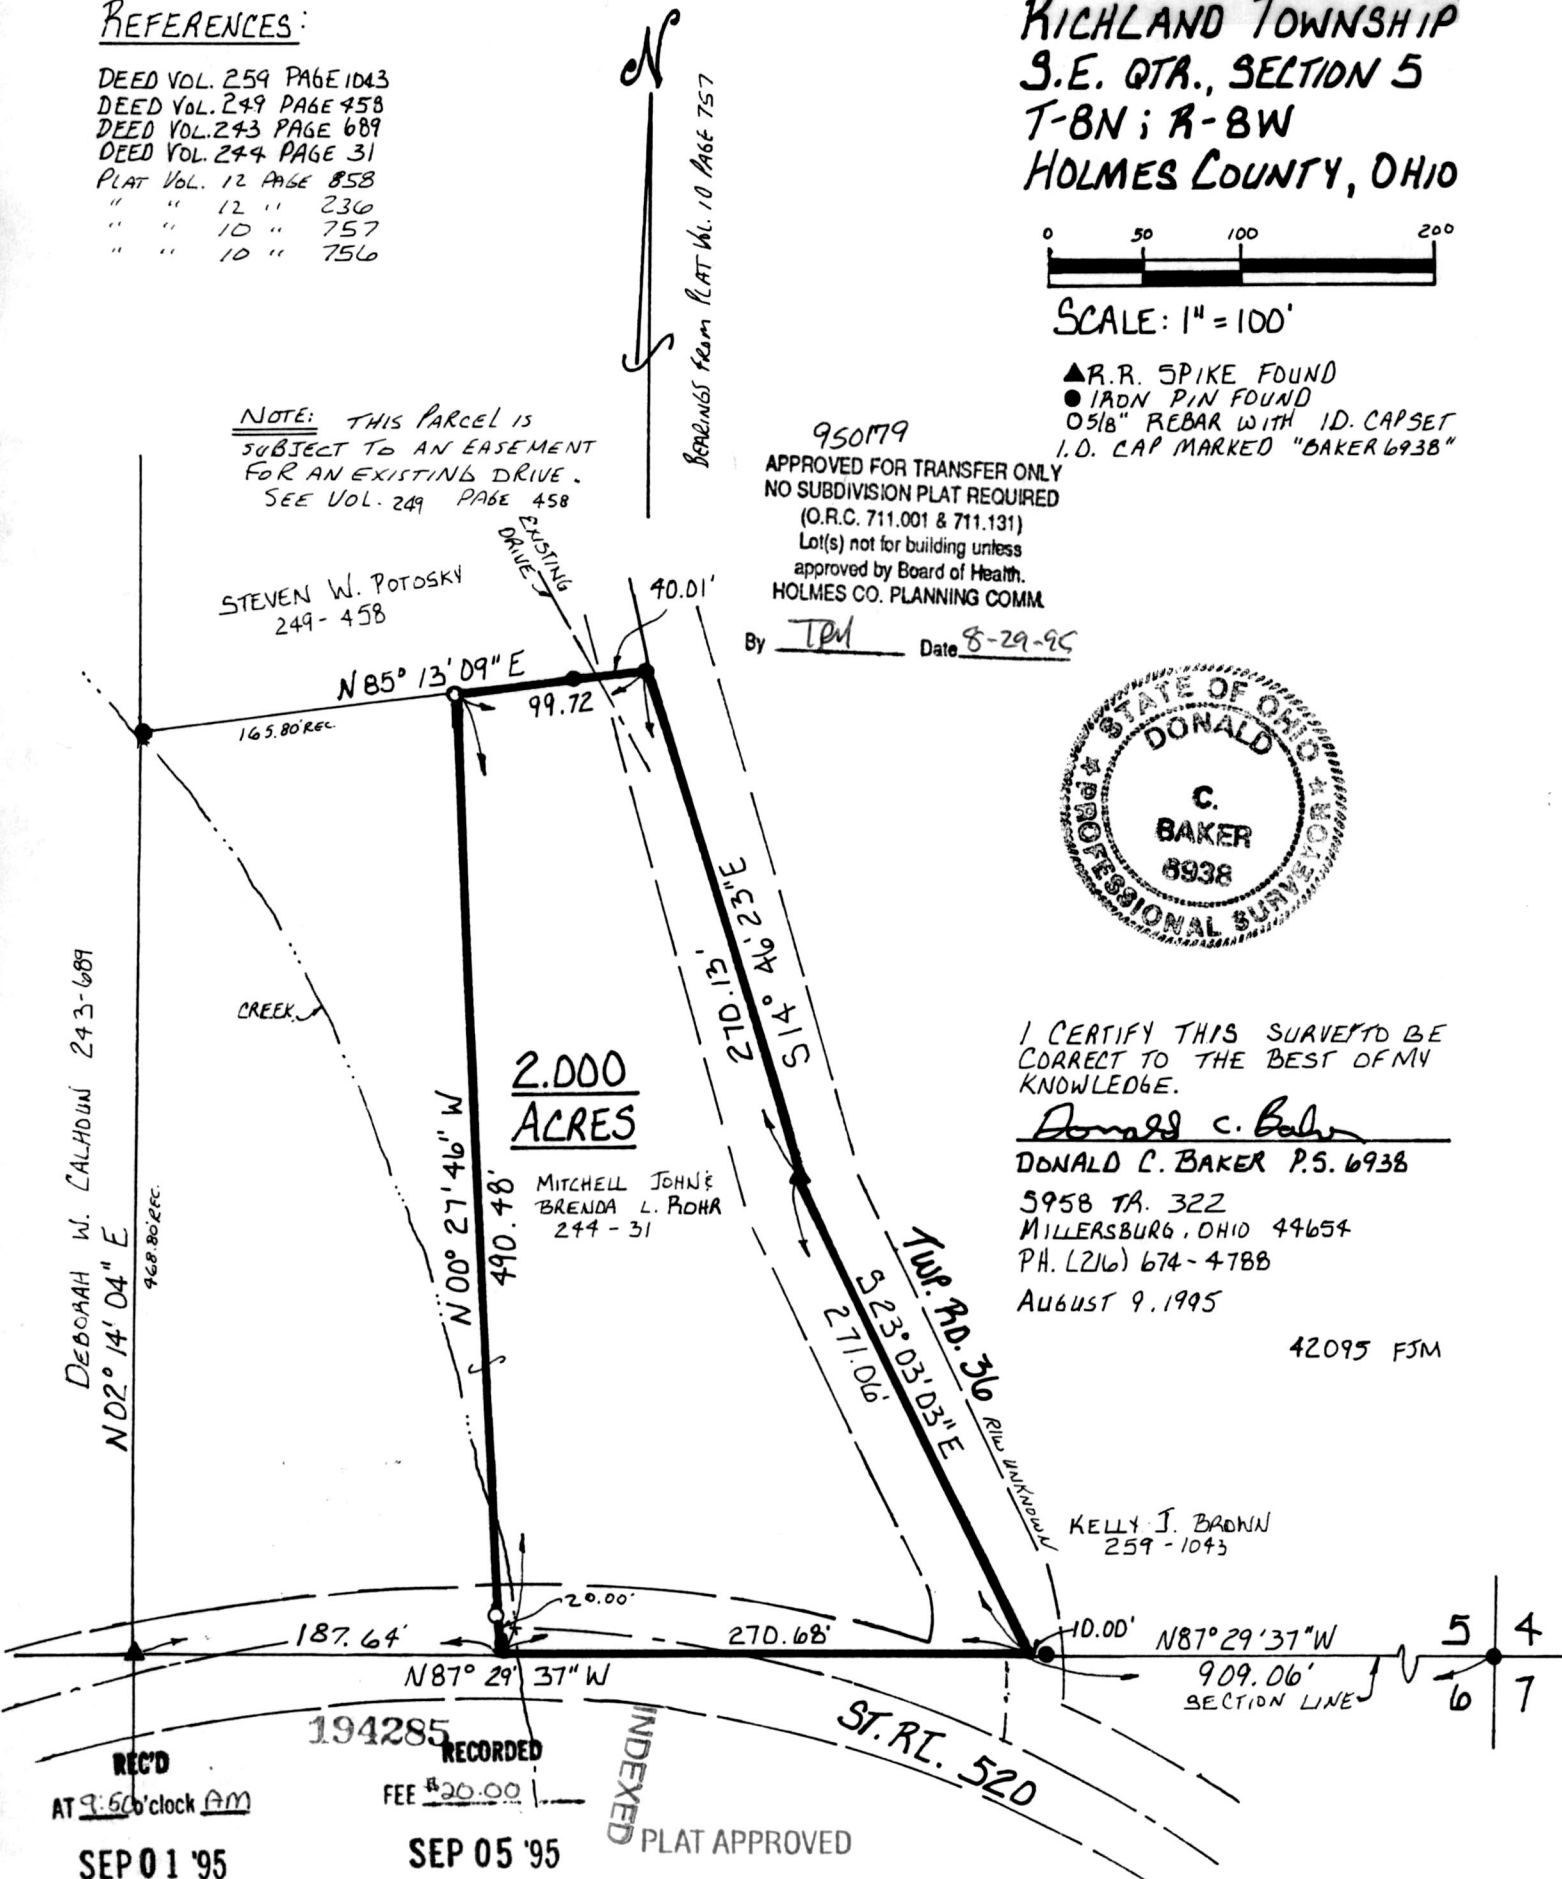 REFERENCES:
DEED VOL. 259 PAGE 1043
DEED VOL. 249 PAGE 458
DEED VOL. 243 PAGE 689
DEED VOL. 244 PAGE 31
PLAT VOL. 12 PAGE 858
" " 12 " 236
" " 10 " 757
" " 10 " 756
N
BEARINGS FROM PLAT VOL. 10 PAGE 757
RICHLAND TOWNSHIP
S.E. QTR., SECTION 5
T-8N; R-8W
HOLMES COUNTY, OHIO
0 50 100 200
SCALE: 1" = 100'
R.R. SPIKE FOUND
IRON PIN FOUND
5/8" REBAR WITH I.D. CAP SET
I.D. CAP MARKED "BAKER 6938"
NOTE: THIS PARCEL IS
SUBJECT TO AN EASEMENT
FOR AN EXISTING DRIVE.
SEE VOL. 249 PAGE 458
950179
APPROVED FOR TRANSFER ONLY
NO SUBDIVISION PLAT REQUIRED
(O.R.C. 711.001 & 711.131)
Lot(s) not for building unless
approved by Board of Health.
HOLMES CO. PLANNING COMM.
By Date 8-29-95
EXISTING
DRIVE
STEVEN W. POTOSKY
249-458
40.01'
N 85° 13' 09" E
99.72
165.80' REC.
STATE OF OHIO
DONALD
C.
BAKER
6938
PROFESSIONAL SURVEYOR
270.13'
S 14° 46' 23" E
CREEK
DEBORAH W. CALHOUN 243-689
N 02° 14' 04" E
468.80' REC.
2.000
ACRES
N 00° 27' 46" W
490.48'
MITCHELL JOHN &
BRENDA L. ROHR
244-31
I CERTIFY THIS SURVEY TO BE
CORRECT TO THE BEST OF MY
KNOWLEDGE.
Donald C. Baker
DONALD C. BAKER P.S. 6938
5958 TR. 322
MILLERSBURG, OHIO 44654
PH. (216) 674-4788
AUGUST 9, 1995
42095 FJM
TWP. RD. 36 R/W UNKNOWN
S 23° 03' 03" E
271.06'
KELLY J. BROWN
259-1043
20.00'
187.64'
270.68'
10.00'
N 87° 29' 37" W
N 87° 29' 37" W
909.06'
SECTION LINE
5 4
6 7
ST. RT. 520
194285
REC'D
AT 9:50 o'clock AM
SEP 01 '95
RECORDED
FEE $20.00
SEP 05 '95
INDEXED
PLAT APPROVED